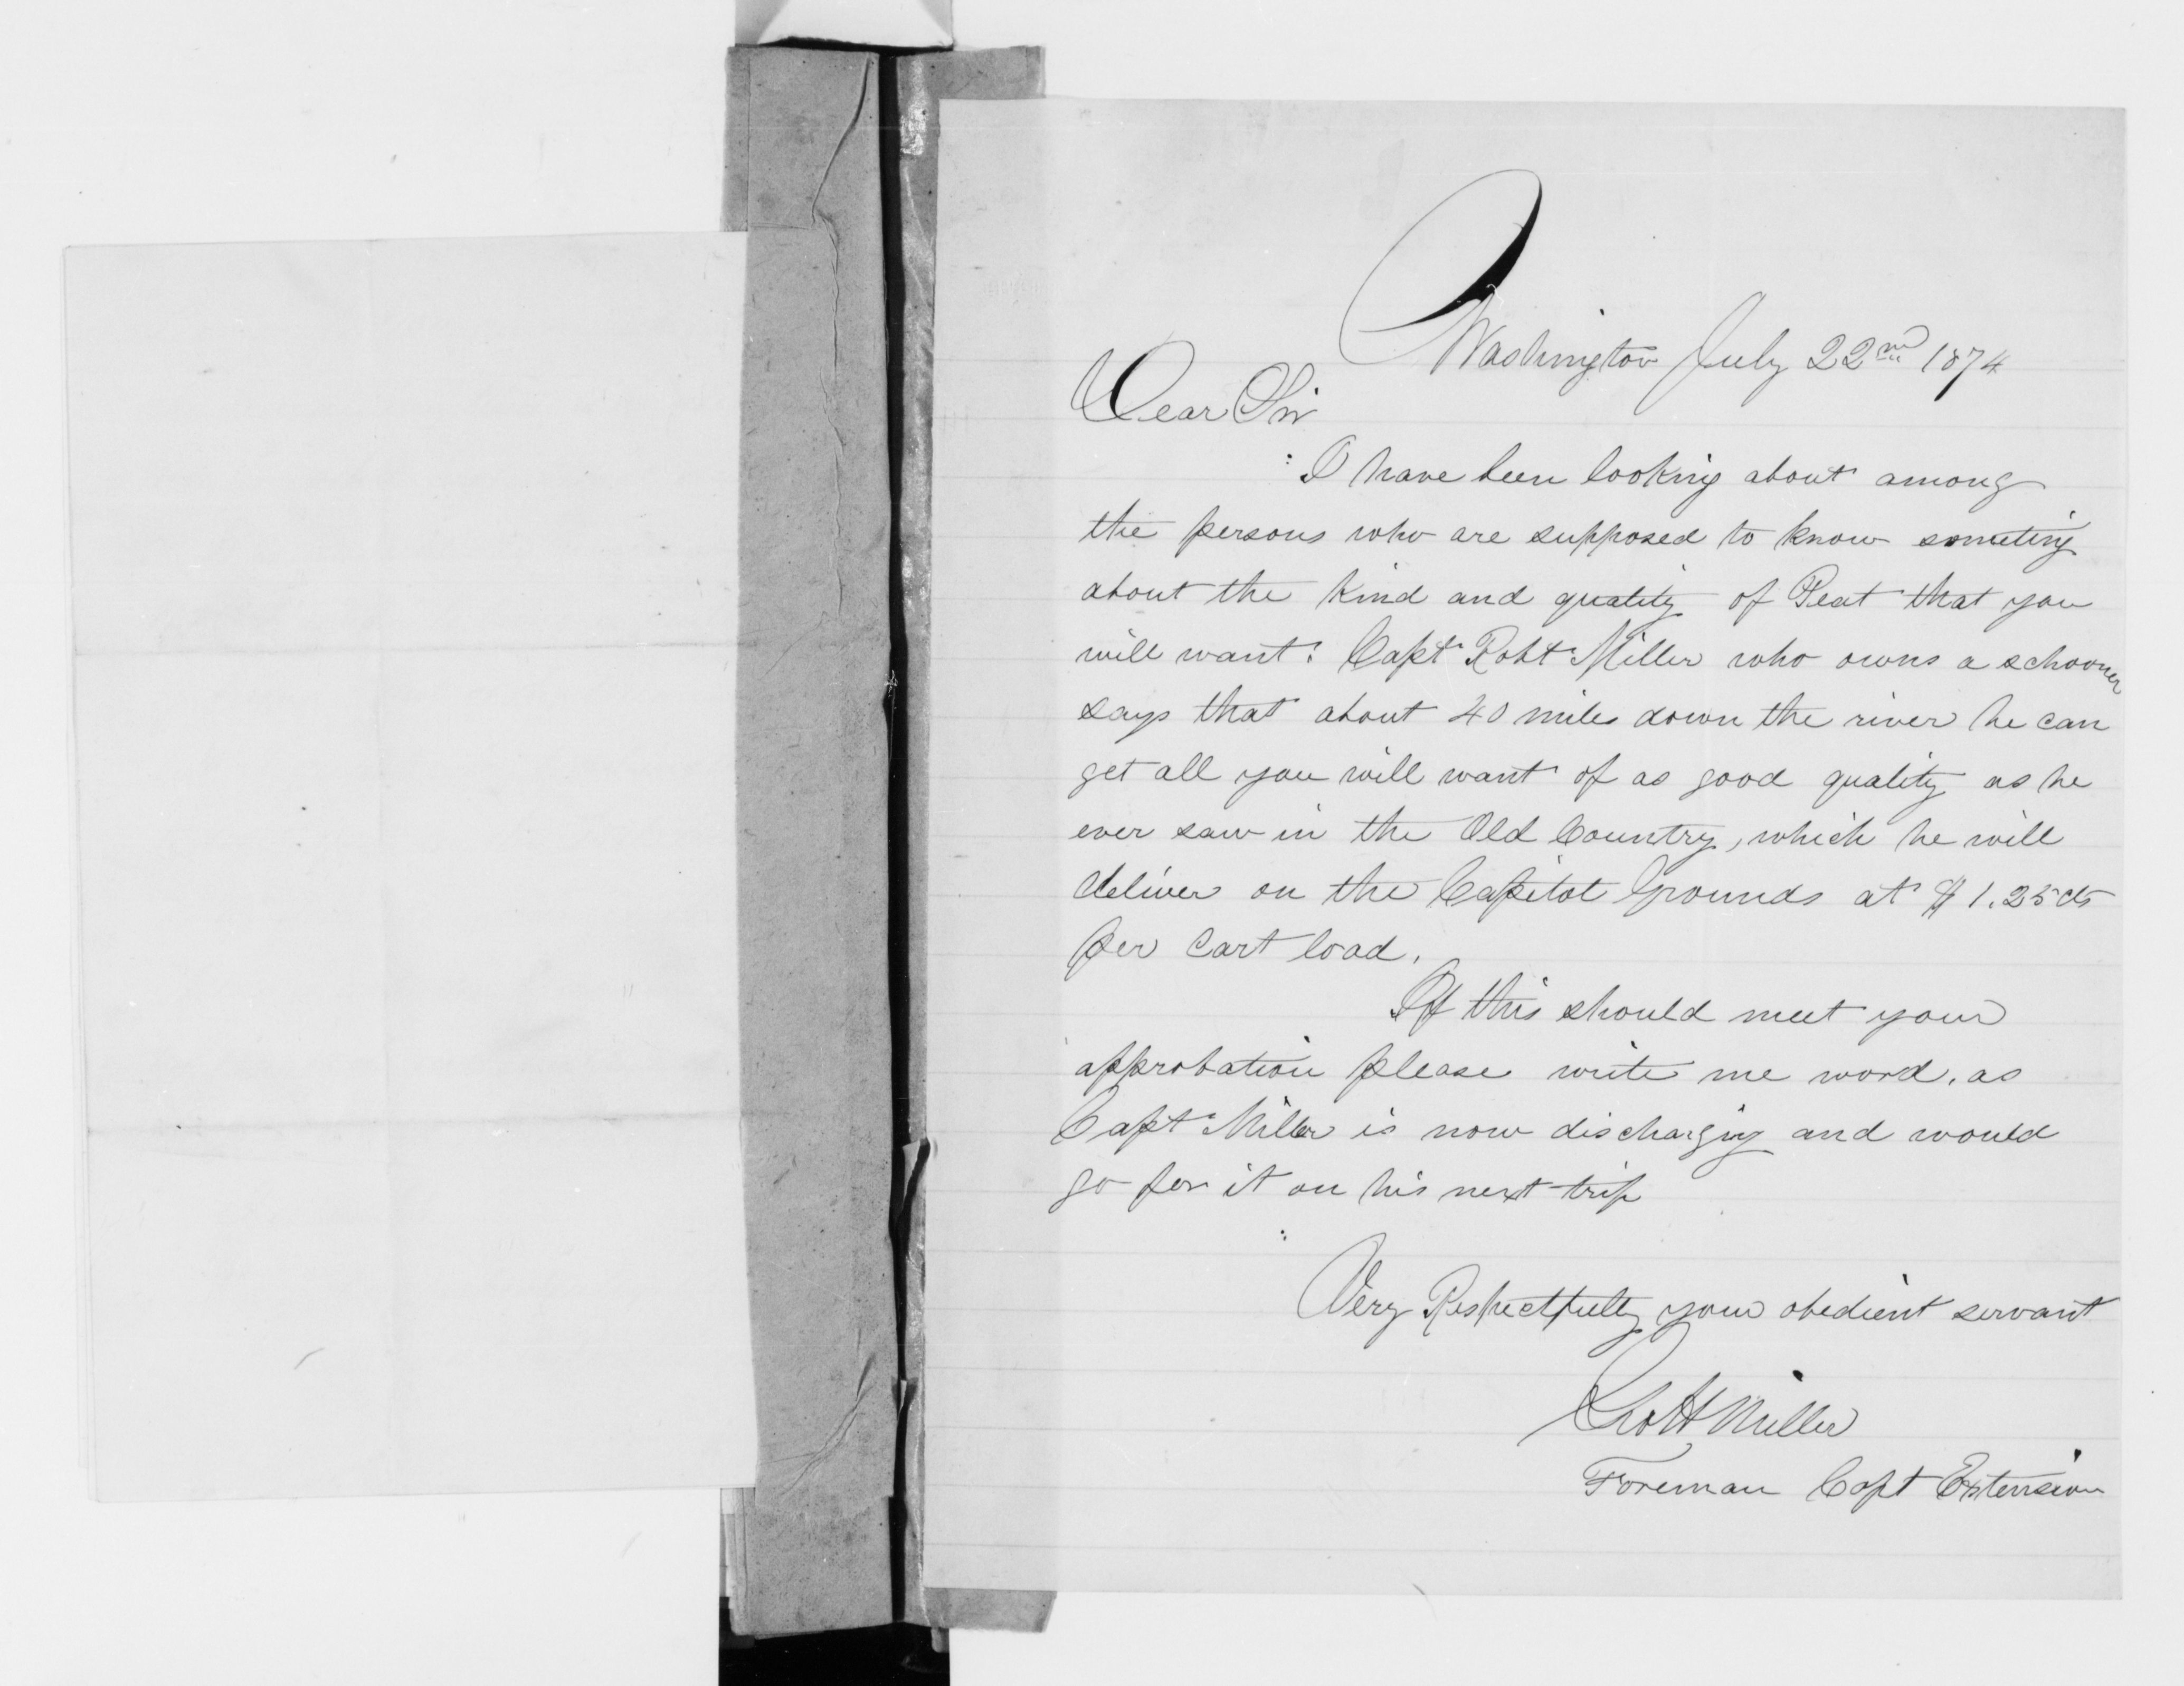 Washington July 22nd 1874
Dear Sir
I have been looking about among
the persons who are supposed to know someting
about the kind and quality of Peat that you
will want: Capt Robt Miller who owns a schooner
says that about 40 miles down the river he can
get all you will want of as good quality as he
ever saw in the Old Country, which he will
deliver on the Capitol Grounds at $1.25 cts
per Cart load.
If this should meet your
approbation please write me word, as
Capt Miller is now discharging and would
go for it on his next trip
Very Respectfully your obedient servant
Miller
Foreman Capt Extension